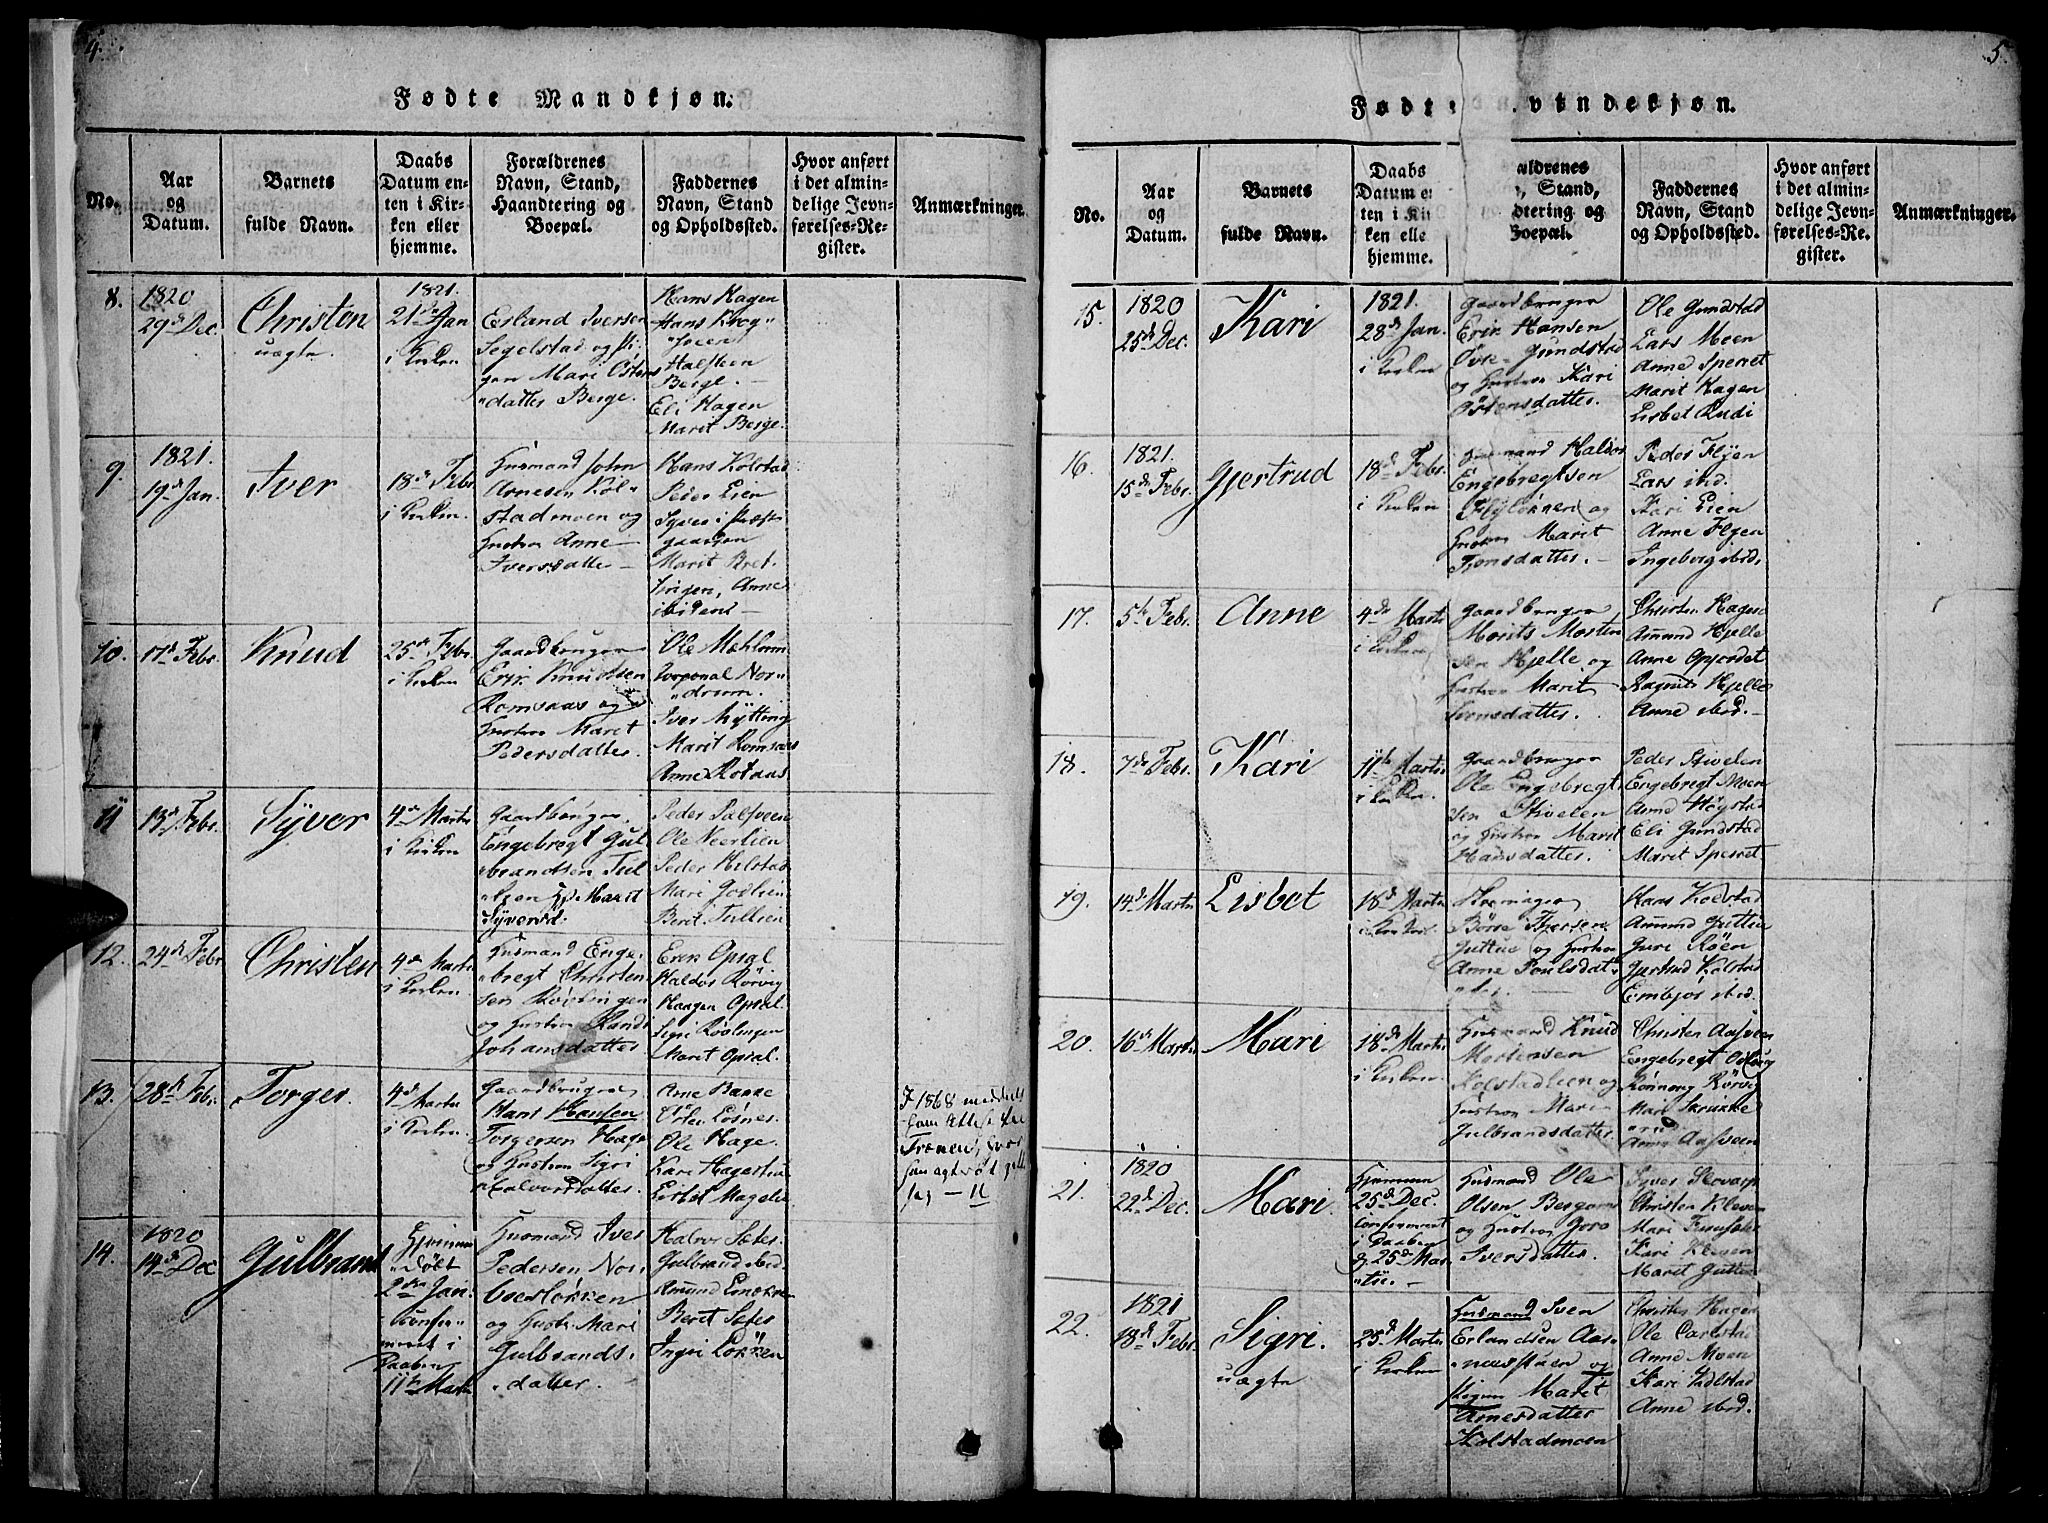 4.
Fødte Mandkjøn.
No.
Aar
og
Datum.
Barnets
fulde Navn.
Daabs
Datum en-
ten i Kir-
ken eller
hjemme.
Forældrenes
Navn, Stand,
Haandtering og
Boepæl.
Faddernes
Navn, Stand
og Opholdssted.
Hvor anført
i det almin-
delige Jevn-
førelses-Re-
gister.
Anmærkninger.
8.
1820
29de Dec.
Christen
uægte
1821.
21de Jan
i Kirken
Erland Iversen
Segelstad og Pi-
gen Mari Østens
"datter Berge.
Hans Hagen
Hans Krog"
Halsteen
Berge. —
Eli Hagen
Marit Berge.
9.
1821.
19de Jan.
Iver
18de Febr
i Kirken.
Husmand John
Arnesen Kol-
stadmoen og
Hustru Anne
Iversdatter —
Hans Kolstad
Peder Lien
Syver i Præste
gaarden
Marit Bret-
Anne
ibidem —
10.
17de Febr.
Knud
25de Febr.
i Kirken.
Gaardbruger
Erik Knudtsen
Romsaas og
Hustru Maret
Pedersdatter.
Ole Mæhlum
Corporal Nor"
"drum.
Iver Mytting
Marit Romsaas
Anne Rolaas
11
13de Febr.
Syver
4de Marts
i Kirken
Gaardbruger
Engebregt Gul-
brandsen Tul-
Marit
Syversd:
Peder
Ole Neerlien
Peder Hilstad
Mari Godlien
Berit Tullien
12.
24de Febr
Christen
4de Marts
i Kirken.
Husmand Enge-
"bregt Christen-
sen Röslingen
og Hustru Randi
Johansdatter
Erik Opsal
Haldor Rörvig
Haagen Opsal
Sigri Röslingen
Maret Opsal.
13.
28de Febr.
Torger.
4de Marts
i Kirken
Gaardbruger
Hans Hansen
Torgersen Hage
og Hustru Sigri
Halvorsdatter.
Arne Bakke
Losnes
Ole Hage.
Kari Hagestuen
Lisbet
I 1868 meddelt
14.
1820
14de Dec
Gulbrand
Hjemme-
"Döbt
2den Jan.
Confir-
meret i
Daaben
11te Marts
Husmand Iver
Pedersen Nor-
verløkken
og Hustr. Mari
Gulbrands-
"datter. —
Halvor Sæter
Gulbrand ibid.
Amund
Beret Sæter
Ingri Løkken
5.
Fødte vindekjøn.
No.
Aar
og
Datum.
Barnets
fulde Navn.
Daabs
Datum e
ten i Kir
ken elle
hjemme.
ældrenes
, Stand,
dtering og
Boepæl.
Faddernes
Navn, Stand
og Opholdssted.
Hvor anført
i det almin-
delige Jevn-
førelses-Re-
gister.
Anmærkninger.
15.
1820
25de Dec.
Kari
1821.
28de Jan.
i Kirken
Gaardbruger
Erik Hansen
Övre-Gundstad
og Hustru Kari
Östensdatter.
Ole Gundstad
Lars Moen
Anne Sperret
Marit Hagen
Lisbet Rudi
16.
1821.
15de Febr.
Gjertrud
18de Febr.
i Kirken
Husmand Haldor
Engebregtsen
Flyløkken og
Hustru Marit
Tronsdatter. —
Peder Flyen
Lars ibid.
Kari Lien
Anne Flyen
Ingeborg ibid.
17.
5te Febr.
Anne
4de Marts
i Kirken
Gaardbruger
Morits Morten
sen Hjelle og
Hustru Marit
Svensdatter.
Christen Hagen
Amund Hjelle
Anne Opjordet
Ragnild Hjelle
Anne ibid. —
18.
7de Febr.
Kari
11te Marts
i Kirken.
Gaardbruger
Ole Engebregt
sen Stivelen
og Hustru Marit
Hansdatter.
Peder Stivelen
Engebregt Moen
Anne Høystad
Eli Gundstad
Marit Sperret
19.
14de Marts
Lisbet
18de Marts
i Kirken.
Skomager
Börre Iversen
Juttue og Hustru
Anne Poulsdat-
ter. —
Hans Kolstad
Amund Juttue
Guri Röen
Gertrud Kolstad
Embjör ibid.
20.
16de Marts
Mari
18de Marts
i Kirken.
Husmand Knud
Mortensen
Kolstadlien og
Hustru Mari
Gulbrandsdatter
Christen Aasveen
Engebregt
Rönnong Rörvig
Mari Skrukke
rud
Anne Aasveen
21.
1820
22de Dec.
Mari.
Hjemme
25de Dec.
Confirmeret
i Daaben
d. 25de Mar-
"tii. —
Husmand Ole
Olsen Bergum
og Hustru Goro
Iversdatter.
Syver
Christen Kleven
Mari
Kari Kleven
Maret Juttue
22.
1821
18de Febr.
Sigri.
uægte
25de Marts
i Kirken
Husmand Sven
Erlandsen Aa-
og
Pigen Maret
Arnesdatter
Kolstadmoen
Christen Hagen
Ole Carlstad
Anne Moen
Kari
Anne ibid.